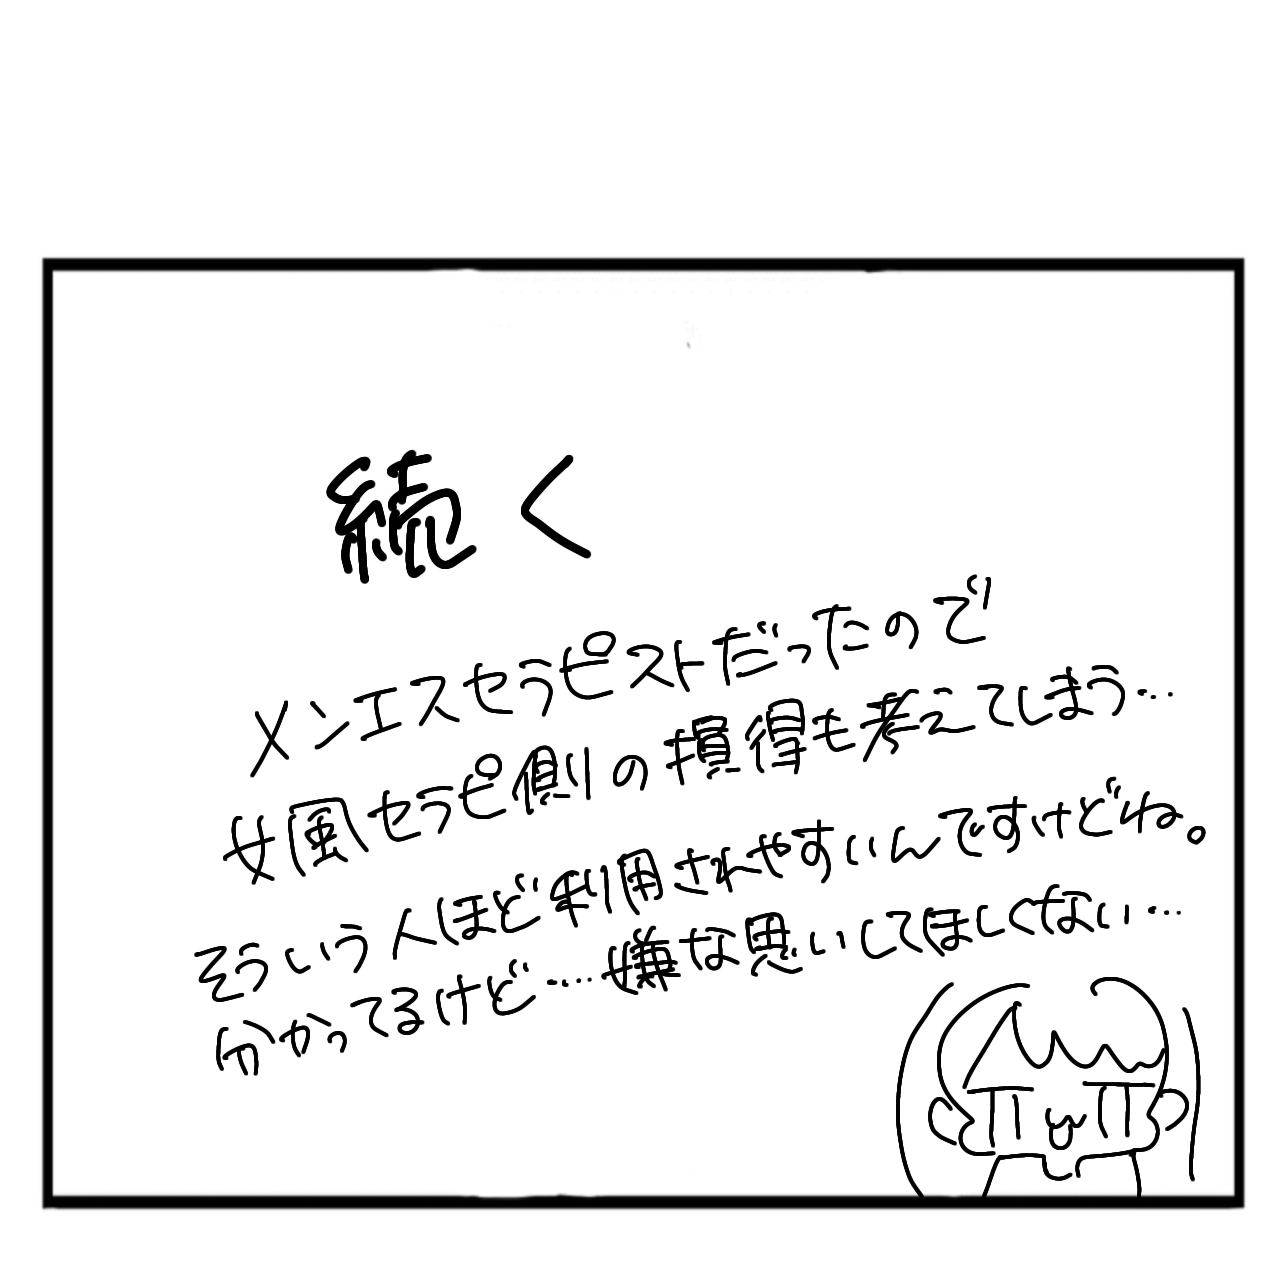 続く
メンエスセラピストだったので
女風セラピ側の損得も考えてしまう…
そういう人ほど利用されやすいんですけどね。
分かってるけど……嫌な思いしてほしくない…